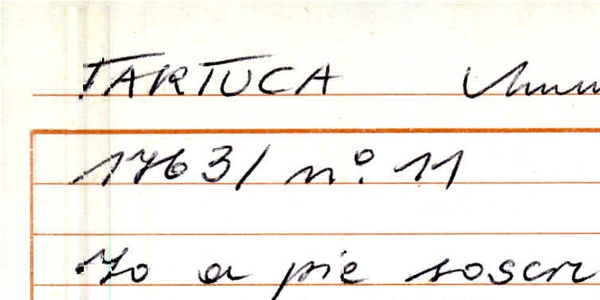 TARTUCA
1763/ nº. 11
Io a pie soscri